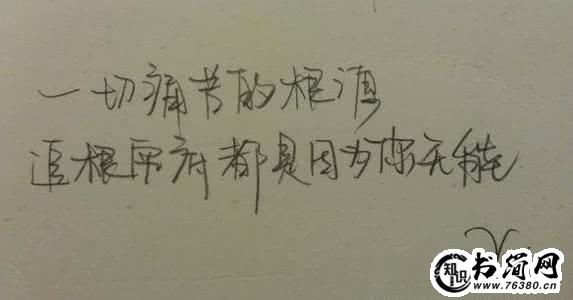 一切痛苦的根源
追根究底都是因为你无能
知识 书简网
www.76380.cn